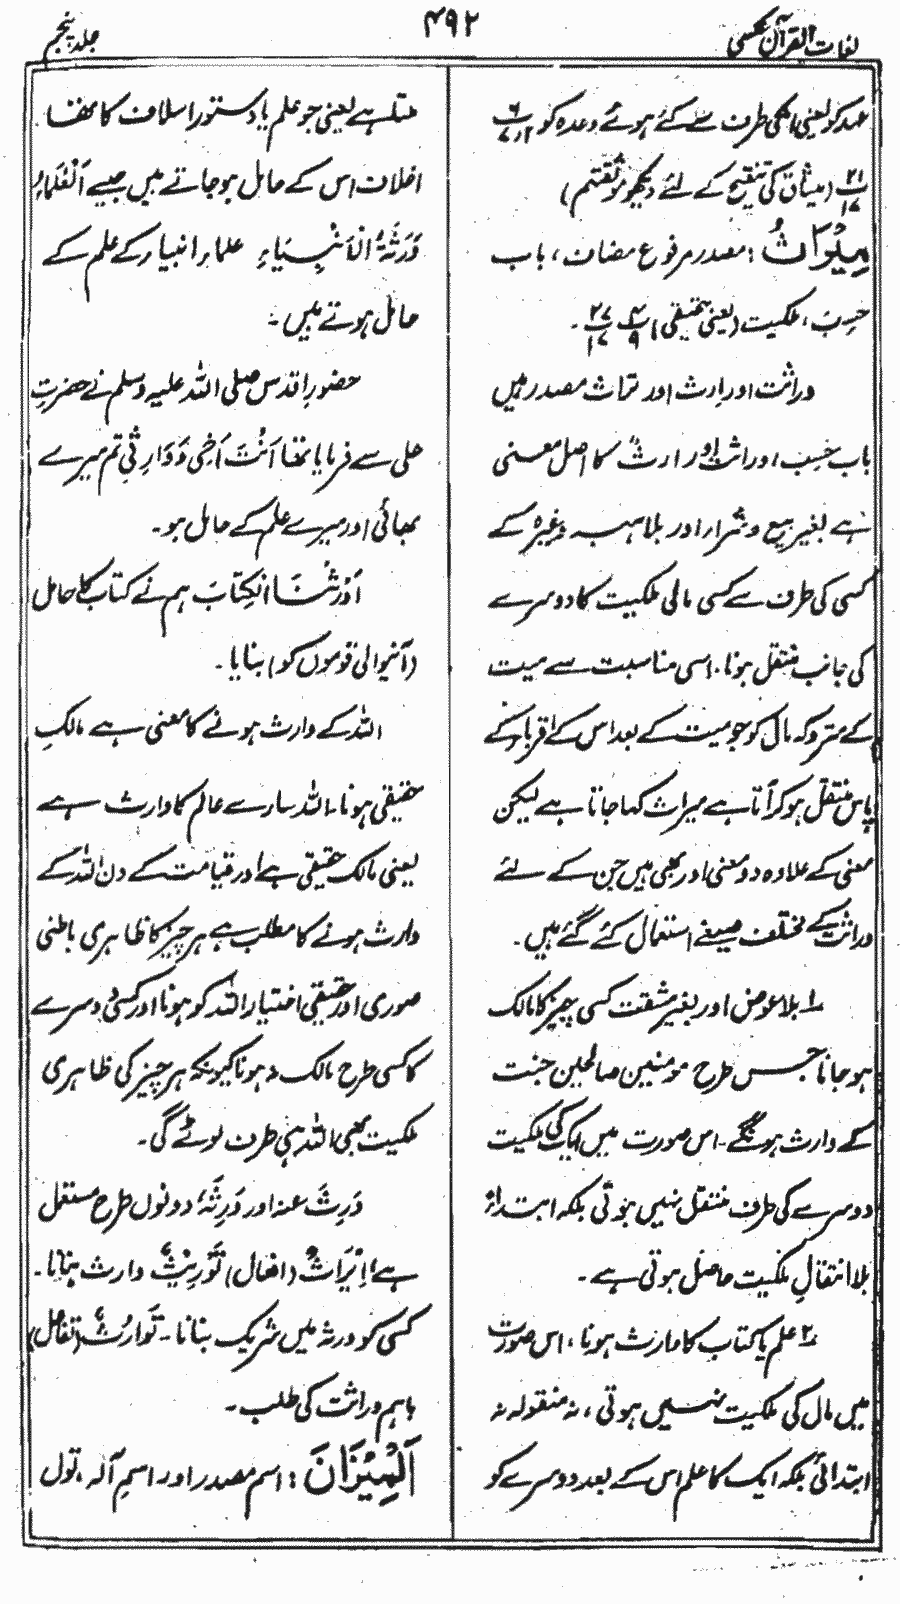 لغات القرآن عکسی
۴۹۲
جلد پنجم
عہد کو یعنی انکی طرف سے کئے ہوئے وعدہ کو
(میثاق کی تنقیح کے لئے دیکھو موثقتم)
مِیْرَاثُ : مصدر مرفوع مضاف، باب
حَسِبَ، ملکیت (یعنی حقیقی)
وراثت اور اِرث اور تراث مصدر ہیں
باب حَسِبَ، اور اثت اور ارث کا اصل معنی
ہے بغیر بیع و شراء اور بلا ہبہ وغیرہ کے
کسی کی طرف سے کسی مالی ملکیت کا دوسرے
کی جانب منتقل ہونا، اسی مناسبت سے میت
کے متروکہ مال کو جو میت کے بعد اس کے اقرباء کے
پاس منتقل ہو کر آتا ہے میراث کہا جاتا ہے لیکن
معنی کے علاوہ دو معنی اور بھی ہیں جن کے لئے
وراثت کے مختلف صیغے استعمال کئے گئے ہیں۔
۱ بلا عوض اور بغیر مشقت کسی چیز کا مالک
ہو جانا جس طرح مومنین صالحین جنت
کے وارث ہونگے۔ اس صورت میں ایک کی ملکیت
دوسرے کی طرف منتقل نہیں ہوتی بلکہ ابتداءً
بلا انتقالِ ملکیت حاصل ہوتی ہے۔
۲ علم یا کتاب کا وارث ہونا، اس صورت
میں مال کی ملکیت نہیں ہوتی، نہ منقولہ نہ
ابتدائی بلکہ ایک کا علم اس کے بعد دوسرے کو
ملتا ہے یعنی جو علم یا دستور اسلاف کا تھا
اخلاف اس کے حامل ہو جاتے ہیں جیسے اَلْعُلَمَاءُ
وَرَثَةُ الْاَنْبِیَاءِ علماء انبیاء کے علم کے
حامل ہوتے ہیں۔
حضور اقدس صلی اللہ علیہ وسلم نے حضرتِ
علی سے فرمایا تھا اَنْتَ اَخِیْ وَ وَارِثِیْ تم میرے
بھائی اور میرے علم کے حامل ہو۔
اَوْرَثْنَا الْکِتَابَ ہم نے کتاب کا حامل
(آنیوالی قوموں کو) بنایا۔
اللہ کے وارث ہونے کا معنی ہے مالکِ
حقیقی ہونا۔ اللہ سارے عالم کا وارث ہے
یعنی مالک حقیقی ہے اور قیامت کے دن اللہ کے
وارث ہونے کا مطلب ہے ہر چیز کا ظاہری باطنی
صوری اور حقیقی اختیار اللہ کو ہونا اور کسی دوسرے
کا کسی طرح مالک نہ ہونا کیونکہ ہر چیز کی ظاہری
ملکیت بھی اللہ ہی طرف لوٹے گی۔
وَرِثَ عنہ اور وَرِثَہٗ، دونوں طرح مستعمل
ہے، اِیْرَاثٌ (افعال) تَوْرِیْثٌ وارث بنانا۔
کسی کو ورثہ میں شریک بنانا۔ تَوَارُثٌ (تفاعل)
باہم وراثت کی طلب۔
اَلْمِیْزَانَ : اسم مصدر اور اسمِ آلہ، تول